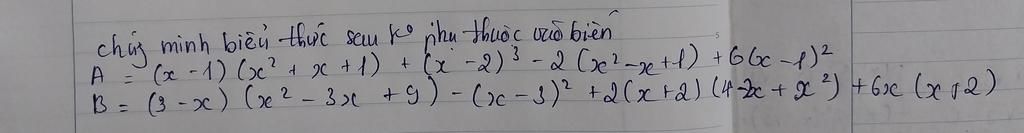 chứg minh biểu thức sau ko phu thuộc vào biến
A = (x - 1) (x² + x + 1) + (x - 2)³ - 2 (x² - x + 1) + 6(x - 1)²
B = (3 - x) (x² - 3x + 9) - (x - 3)² + 2(x + 2) (4 - 2x + x²) + 6x (x + 2)